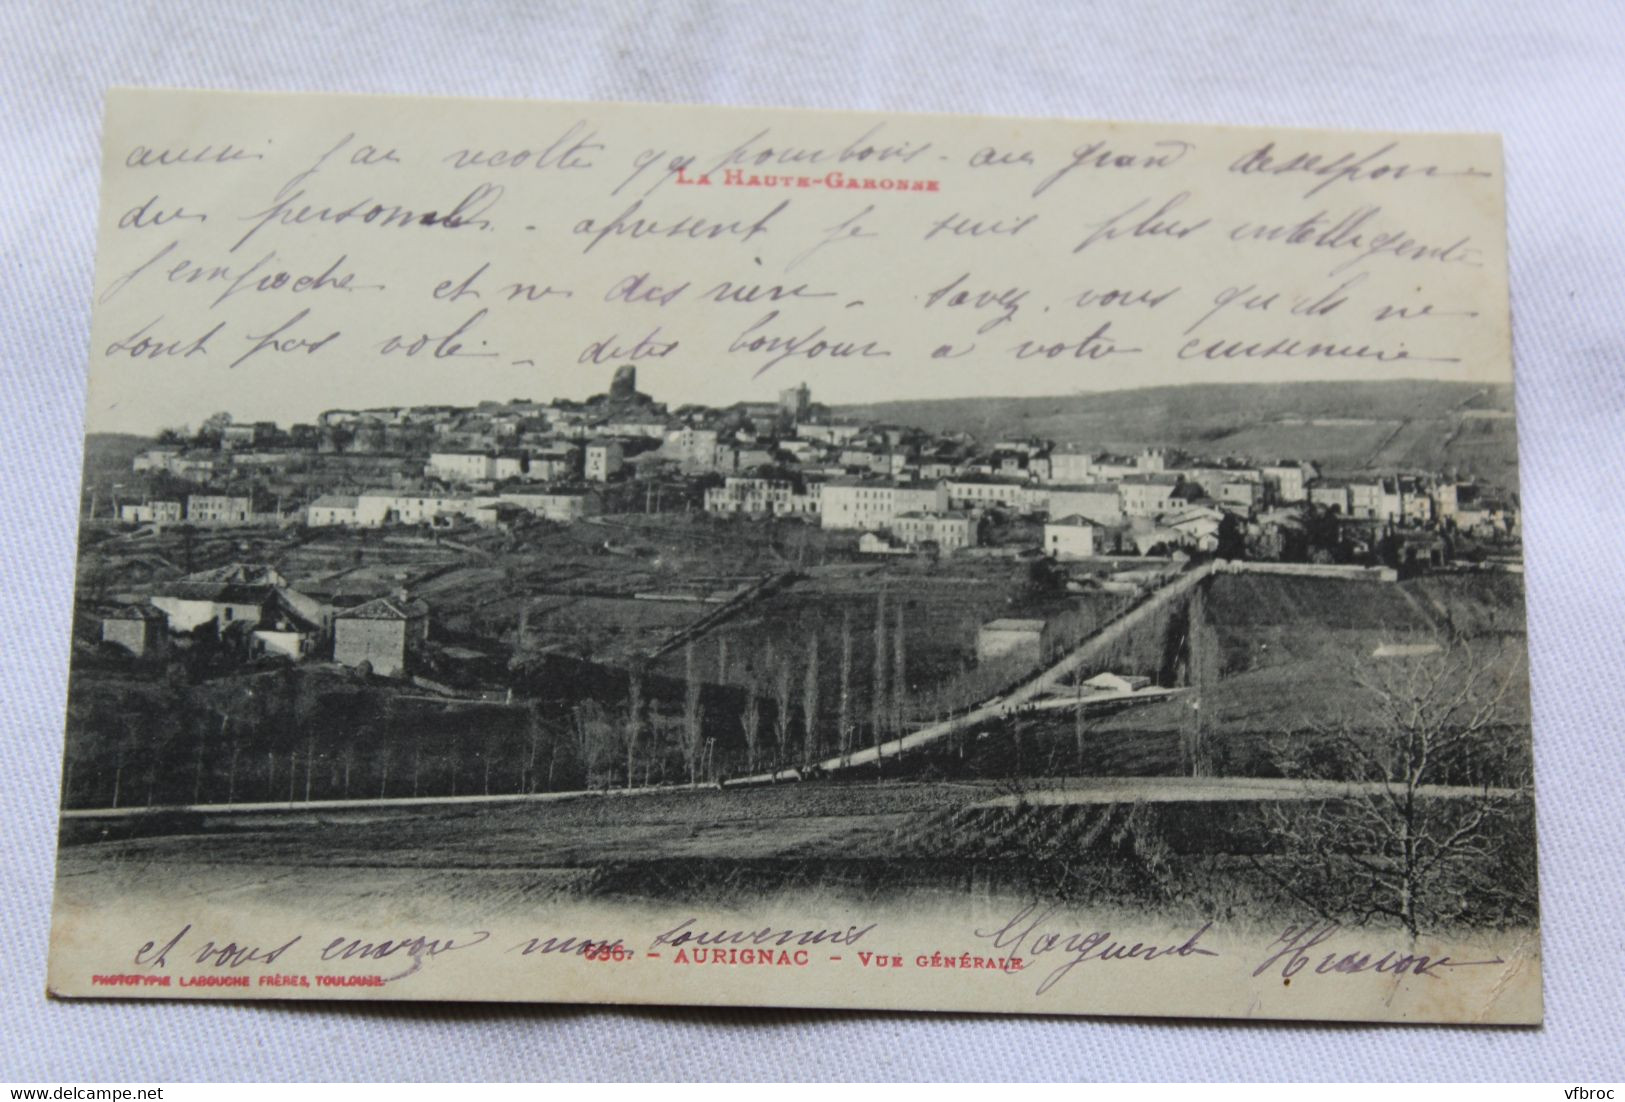 aussi j'ai récolté qq pourboirs - au grand desespoir
LA HAUTE-GARONNE
du personnel - apresent je suis plus intelligente
j'empoche et ne dis rien - savez-vous qu'ils ne
sont pas volé - dites bonjour a votre cuisiniere
et vous envoie mes souvenirs Marguerite
696. - AURIGNAC - VUE GÉNÉRALE
PHOTOTYPIE LABOUCHE FRÈRES, TOULOUSE
delcampe.net
vfbroc